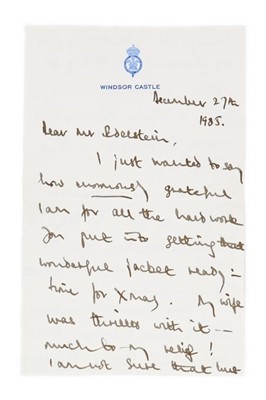 WINDSOR CASTLE
December 27th
1985.
Dear Mr Edelstein,
I just wanted to say
how enormously grateful
I am for all the hard work
you put into getting that
wonderful jacket ready in
time for Xmas. My wife
was thrilled with it –
much to my relief!
I am not sure that